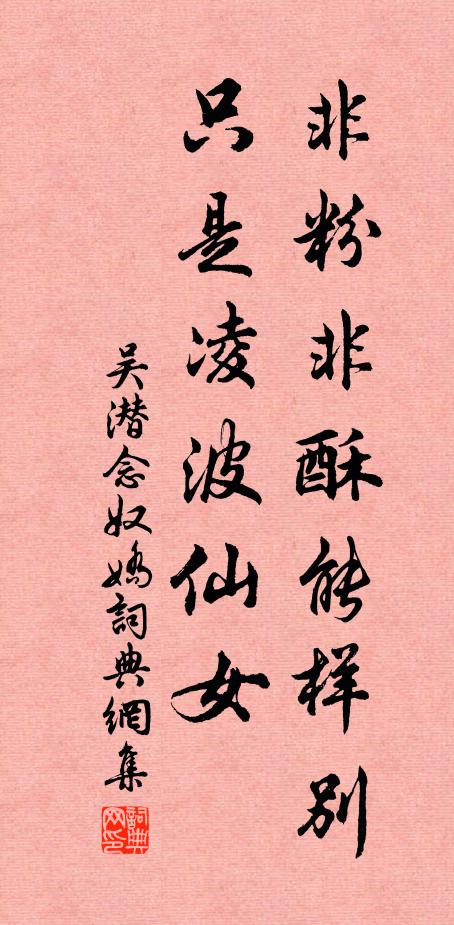 非粉非酥能样别
只是凌波仙女
吴潜念奴娇詞典網集
詞典網印